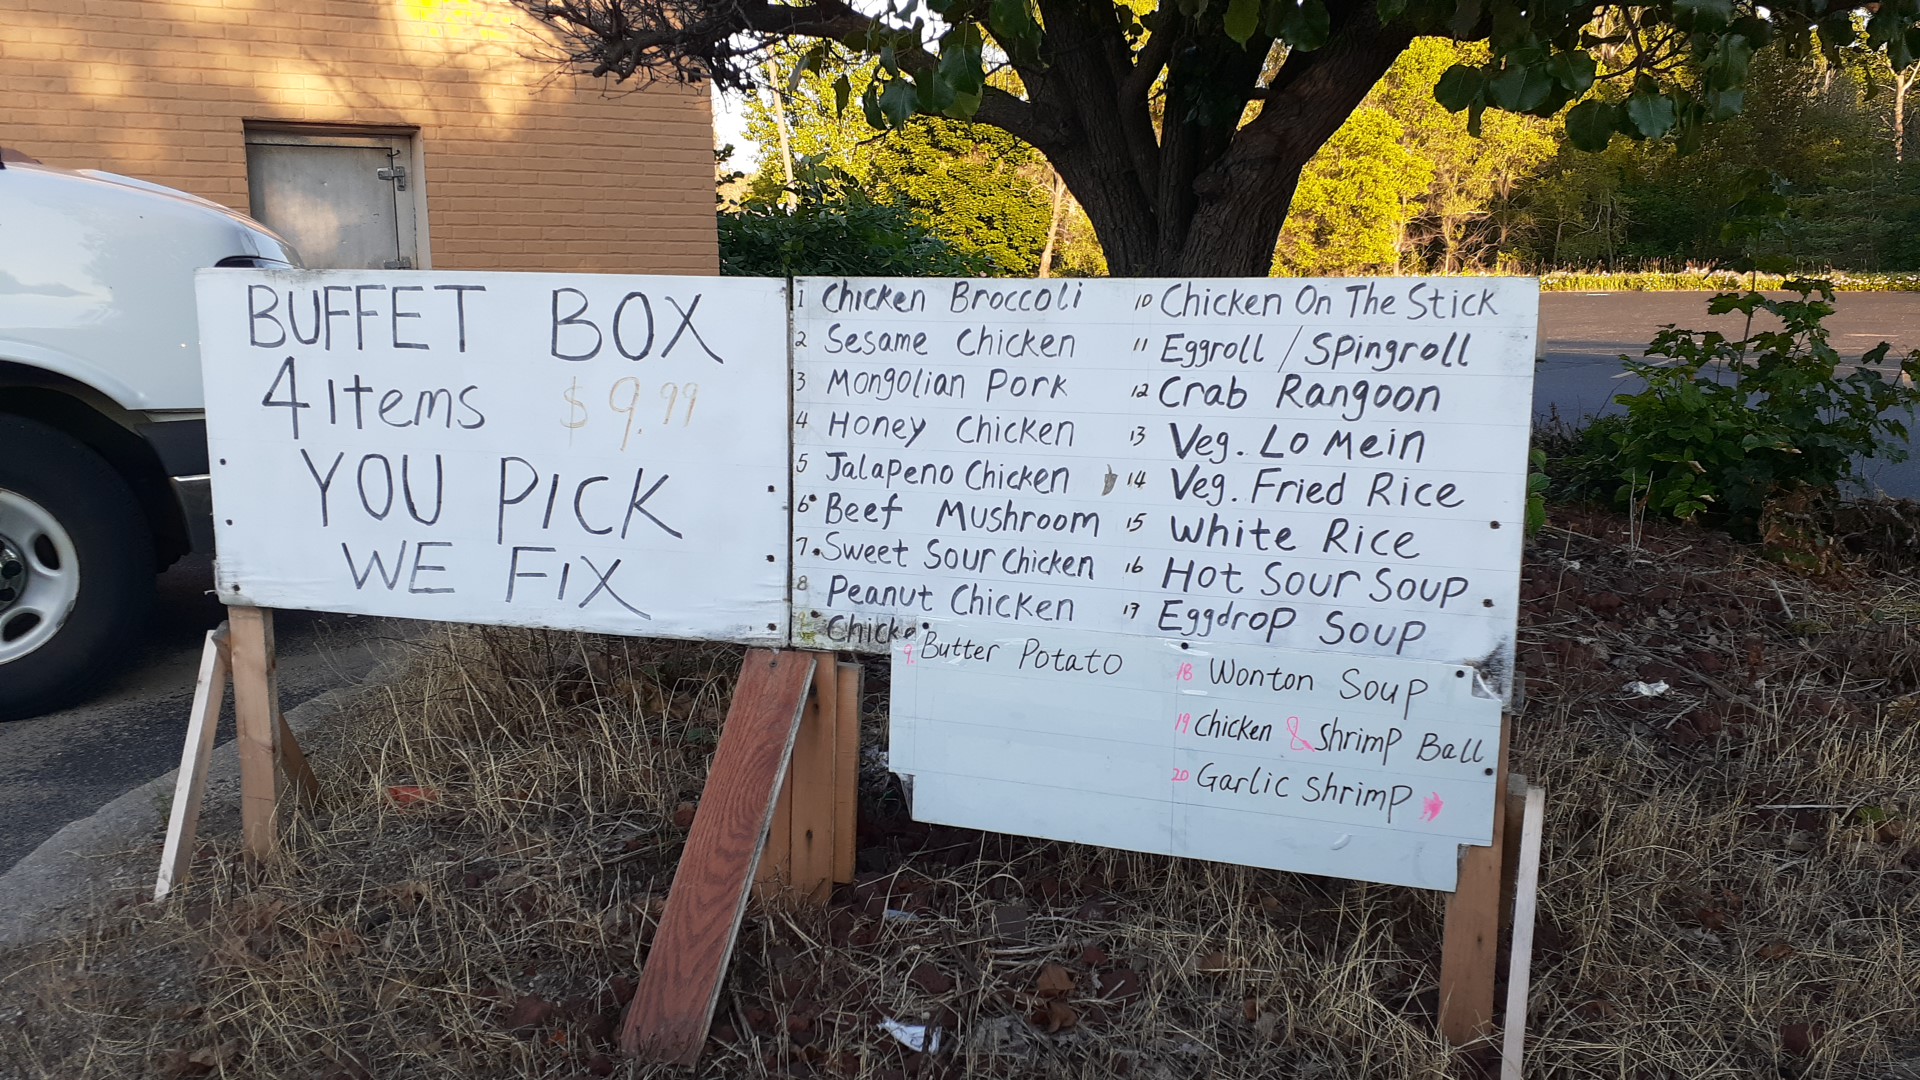 BUFFET BOX
4 Items $9.99
YOU PICK
WE FIX
1 Chicken Broccoli
2 Sesame Chicken
3 Mongolian Pork
4 Honey Chicken
5 Jalapeno Chicken
6 Beef Mushroom
7. Sweet Sour Chicken
8 Peanut Chicken
9. Butter Potato
10 Chicken On The Stick
11 Eggroll / Spingroll
12 Crab Rangoon
13 Veg. Lo Mein
14 Veg. Fried Rice
15 White Rice
16 Hot Sour Soup
17 Eggdrop Soup
18 Wonton Soup
19 Chicken & Shrimp Ball
20 Garlic Shrimp